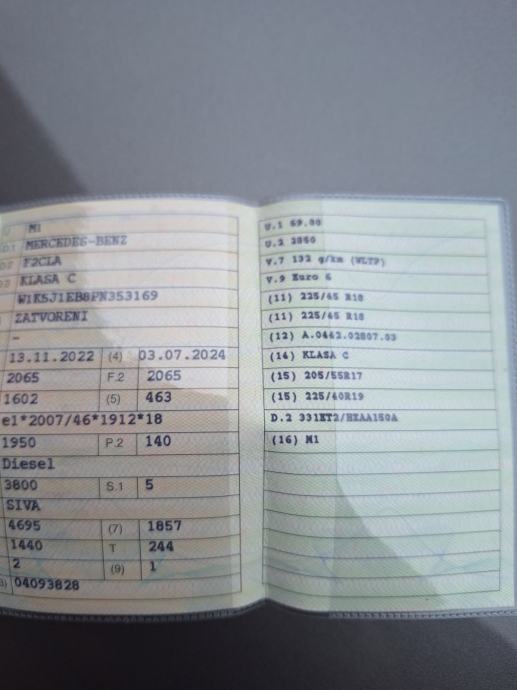 M1
D.1 MERCEDES-BENZ
D.2 F2CLA
D.3 KLASA C
W1K5J1EB8PN353169
ZATVORENI
-
13.11.2022 (4) 03.07.2024
2065 F.2 2065
1602 (5) 463
e1*2007/46*1912*18
1950 P.2 140
Diesel
3800 S.1 5
SIVA
4695 (7) 1857
1440 T 244
2 (9) 1
04093828
U.1 69.00
U.2 2850
V.7 132 g/km (WLTP)
V.9 Euro 6
(11) 225/45 R18
(11) 225/45 R18
(12) A.0442.02807.03
(14) KLASA C
(15) 205/55R17
(15) 225/40R19
D.2 331KT2/HZAA150A
(16) M1